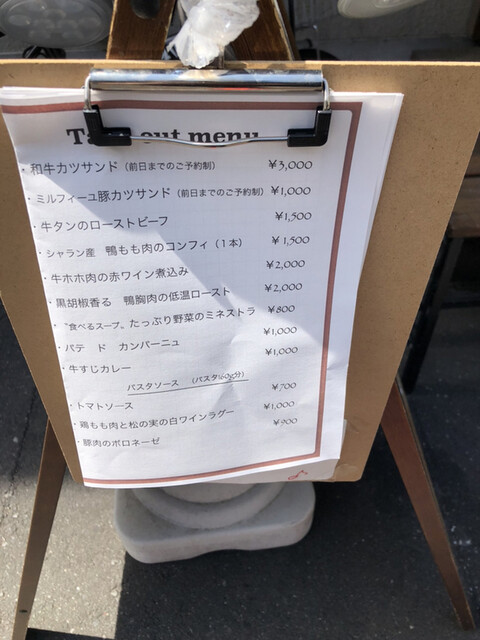 Take out menu
・和牛カツサンド（前日までのご予約制） ¥3,000
・ミルフィーユ豚カツサンド（前日までのご予約制） ¥1,000
・牛タンのローストビーフ ¥1,500
・シャラン産 鴨もも肉のコンフィ（1本） ¥1,500
・牛ホホ肉の赤ワイン煮込み ¥2,000
・黒胡椒香る 鴨胸肉の低温ロースト ¥2,000
・"食べるスープ。たっぷり野菜のミネストラ ¥800
・パテ ド カンパーニュ ¥1,000
・牛すじカレー ¥1,000
パスタソース （パスタ160g分）
・トマトソース ¥700
・鶏もも肉と松の実の白ワインラグー ¥1,000
・豚肉のボロネーゼ ¥900